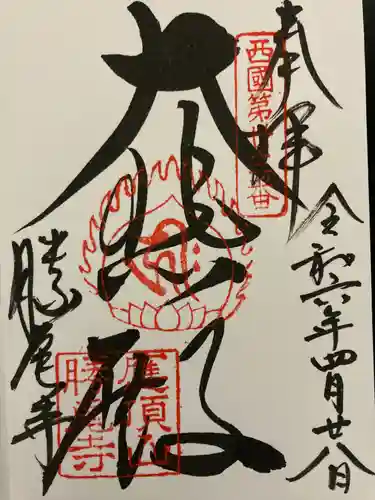 奉拝
令和六年四月廿八日
西國第廿三番
大悲殿
勝尾寺
應頂山
勝尾寺